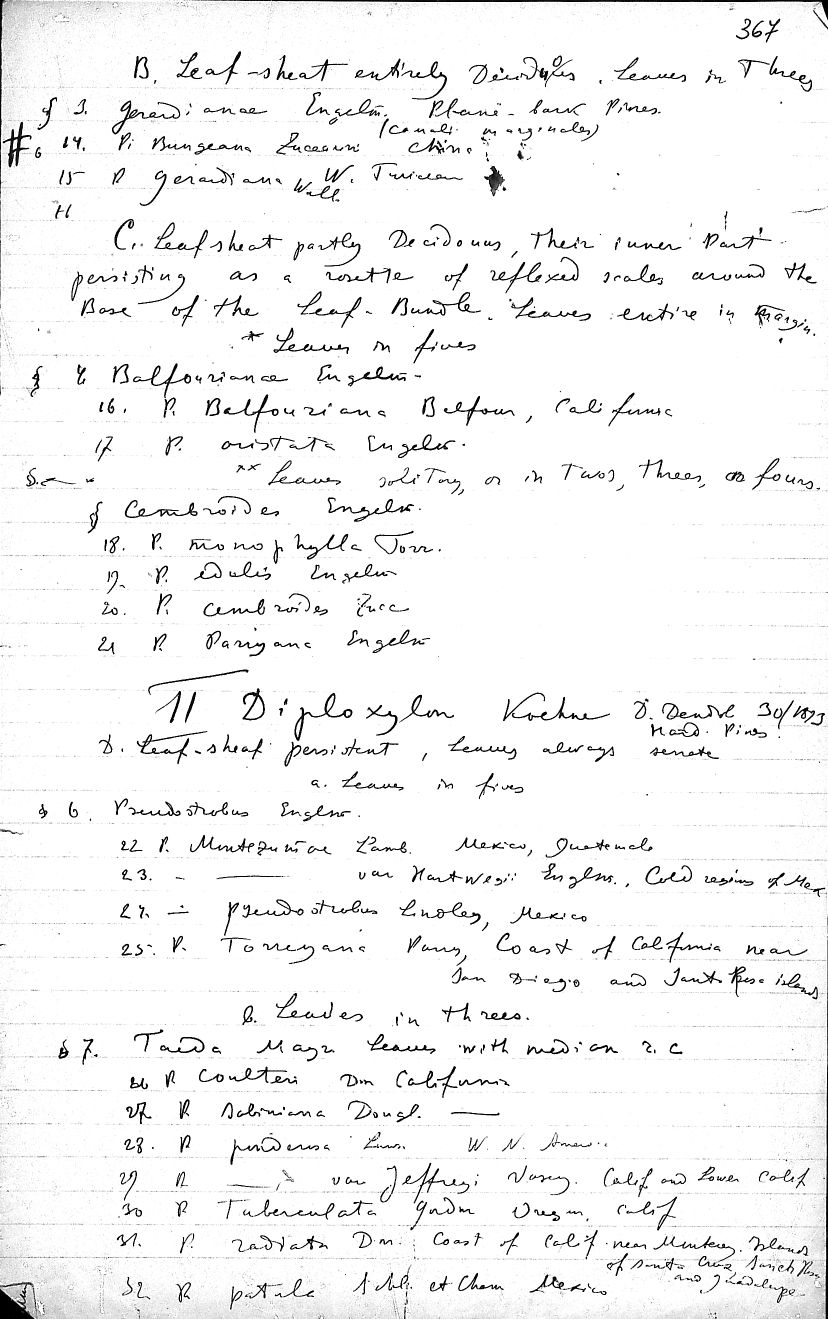 367
B. Leaf-sheat entirely Deciduous. Leaves in Threes
§ 3. Gerardianae Engelm. Plane-bark Pines.
(canals marginales)
# 6 14. P. Bungeana Zuccarini China
15 P. Gerardiana W.
Wall
H
C. Leaf sheat partly Decidous, Their inner Part
persisting as a rosette of reflexed scales around the
Base of the Leaf-Bundle. Leaves entire in margin.
* Leaves in fives
§ 4 Balfourianae Engelm-
16. P. Balfouriana Balfour, California
17 P. aristata Engelm.
** Leaves solitary, or in Twos, Threes, or fours.
§ Cembroides Engelm.
18. P. monophylla Torr.
19. P. edulis Engelm
20. P. cembroides Zucc
21 P. Parryana Engelm
II Diploxylon Koehne D. Dendrol 30/1893
Hard Pines.
D. Leaf-sheaf persistent, Leaves always serrate
a. Leaves in fives
§ 6. Pseudostrobus Englm.
22 P. Montezumae Lamb. Mexico, Guatemala
23. - —— var Hartwegii Englm., Cold regions of Mex
24. — pseudostrobus Lindley, Mexico
25. P. Torreyana Parry, Coast of California near
San Diego and Santa Rosa islands
b. Leaves in threes.
§ 7. Taeda Mayr Leaves with median r. c
26 P. Coulteri Don California
27. P. Sabiniana Dougl. ——
28. P. ponderosa Laws. W. N. Amer..
29 P. —— var Jeffreyi Vasey. Calif and Lower Calif
30 P. Tuberculata Gordon Oregon, Calif
31. P. radiata Don. Coast of Calif. near Monterey. Islands
of Santa Cruz, Santa Rosa
and Guadelupe
32. P. patula Schl. et Cham Mexico